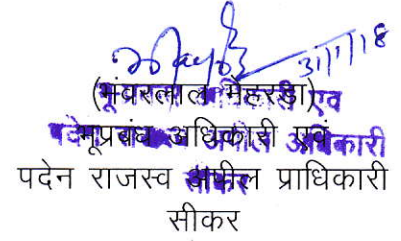 31/1/18
(भंवरलाल मेहरडा)
भूप्रबंध अधिकारी एवं
पदेन राजस्व अपील प्राधिकारी
सीकर